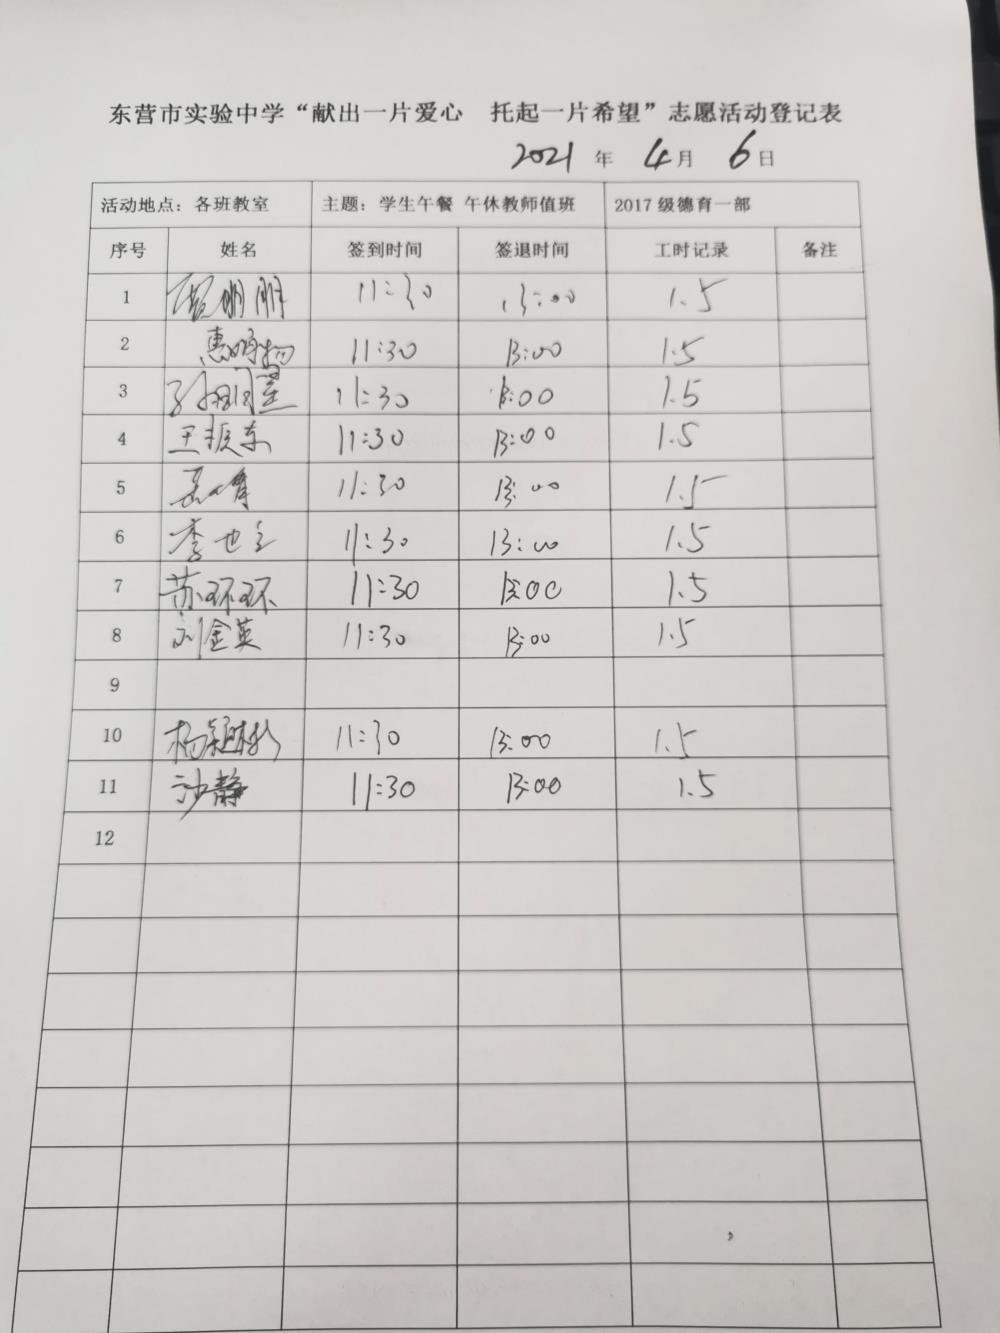 东营市实验中学“献出一片爱心 托起一片希望”志愿活动登记表
2021 年 4 月 6 日
活动地点：各班教室 主题：学生午餐 午休教师值班 2017 级德育一部
序号 姓名 签到时间 签退时间 工时记录 备注
1 11:30 13:00 1.5
2 11:30 13:00 1.5
3 11:30 13:00 1.5
4 王振东 11:30 13:00 1.5
5 11:30 13:00 1.5
6 李世立 11:30 13:00 1.5
7 苏环环 11:30 13:00 1.5
8 刘金英 11:30 13:00 1.5
9
10 11:30 13:00 1.5
11 沙静 11:30 13:00 1.5
12